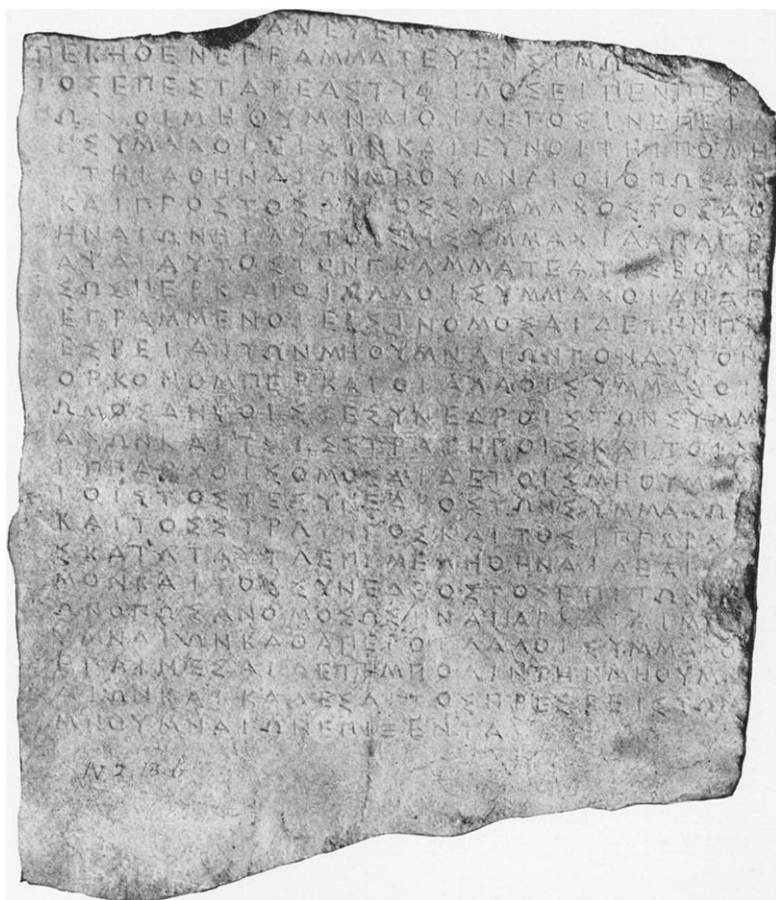 ΑΝΕΥΕΝ
ΠΕΚΗΘΕΝΕΓΡΑΜΜΑΤΕΥΕΝΣΙΜΩ
ΙΟΣΕΠΕΣΤΑΤΕΑΣΤΥΦΙΛΟΣΕΙΠΕΝΠΕΡ
ΩΝΟΙΜΗΘΥΜΝΑΙΟΙΛΕΓΟΣΙΝΕΠΕΙ
ΗΣΥΜΑΧΟΙΕΙΣΙΝΚΑΙΕΥΝΟΙΤΗΙΠΟΛΗ
ΙΤΗΙΑΘΗΝΑΙΩΝΜΗΘΥΜΝΑΙΟΙΟΠΩΣΑΝ
ΚΑΙΠΡΟΣΤΟΣΑΛΛΟΣΣΥΜΜΑΧΟΣΤΟΣΑΘ
ΗΝΑΙΩΝΗΙΑΥΤΟΙΣΗΣΥΜΜΑΧΙΑΑΝΑΓΡ
ΑΨΑΙΑΥΤΟΣΤΟΝΓΡΑΜΜΑΤΕΑΤΗΣΒΟΛΗ
ΣΩΣΠΕΡΚΑΙΟΙΑΛΛΟΙΣΥΜΜΑΧΟΙΑΝΑΓ
ΕΓΡΑΜΜΕΝΟΙΕΙΣΙΝΟΜΟΣΑΙΔΕΤΗΝΠΡ
ΕΣΒΕΙΑΝΤΩΝΜΗΘΥΜΝΑΙΩΝΤΟΝΑΥΤΟΝ
ΟΡΚΟΝΟΜΠΕΡΚΑΙΟΙΑΛΛΟΙΣΥΜΜΑΧΟΙ
ΩΜΟΣΑΝΤΟΙΣΤΕΣΥΝΕΔΡΟΙΣΤΩΝΣΥΜΜ
ΑΧΩΝΚΑΙΤΟΙΣΣΤΡΑΤΗΓΟΙΣΚΑΙΤΟΙΣ
ΙΠΠΑΡΧΟΙΣΟΜΟΣΑΙΔΕΤΟΙΣΜΗΘΥΜΝΑ
ΙΟΙΣΤΟΣΤΕΣΥΝΕΔΡΟΣΤΩΝΣΥΜΜΑΧΩΝ
ΚΑΙΤΟΣΣΤΡΑΤΗΓΟΣΚΑΙΤΟΣΙΠΠΑΡΧΟ
ΣΚΑΤΑΤΑΥΤΑΕΠΙΜΕΛΗΘΗΝΑΙΔΕΑΙΣΙ
ΜΟΝΚΑΙΤΟΣΣΥΝΕΔΡΟΣΤΟΣΕΠΙΤΩΝΝΕ
ΩΝΟΠΩΣΑΝΟΜΟΣΩΣΙΝΑΙΑΡΧΑΙΑΙΜΗΘ
ΥΜΝΑΙΩΝΚΑΘΑΠΕΡΟΙΑΛΛΟΙΣΥΜΜΑΧΟ
ΕΠΑΙΝΕΣΑΙΔΕΤΗΜΠΟΛΙΝΤΗΝΜΗΘΥΜΝ
ΑΙΩΝΚΑΙΚΑΛΕΣΑΙΤΟΣΠΡΕΣΒΕΙΣΤΩΝ
ΜΗΘΥΜΝΑΙΩΝΕΠΙΞΕΝΙΑ